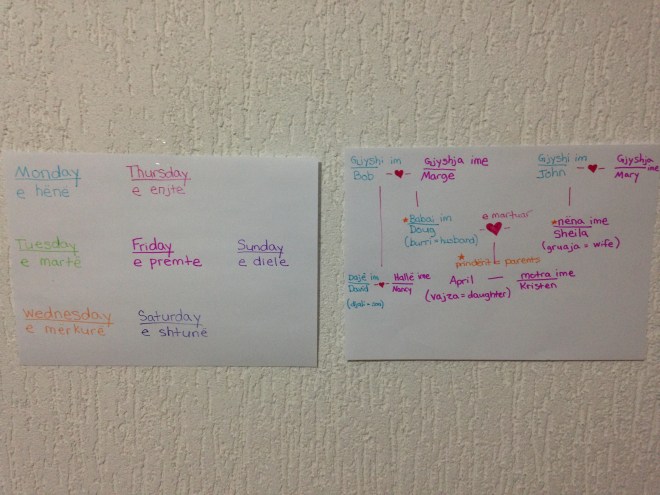 Monday
e hënë
Thursday
e enjte
Tuesday
e martë
Friday
e premte
Sunday
e diele
Wednesday
e merkurë
Saturday
e shtunë
Gjyshi im
Bob
Gjyshja ime
Marge
Gjyshi im
John
Gjyshja ime
Mary
*Babai im
Doug
(burri=husband)
e martuar
*nëna ime
Sheila
(gruaja = wife)
*prindërit = parents
Dajë im
David
(djali=son)
Hallë ime
Nancy
April
(vajza=daughter)
motra ime
Kristen